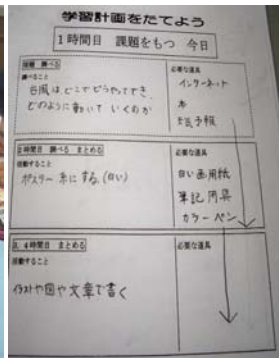 学習計画をたてよう
1時間目 課題をもつ 今日
調べる
調べること
台風はどこでどうやってでき、
どのように動いていくのか
必要な道具
インターネット
本
天気予報
2時間目 調べる まとめる
活動すること
ポスター系にする(白い)
必要な道具
白い画用紙
筆記用具
カラーペン
3、4時間目 まとめる
活動すること
イラストや図や文章で書く
必要な道具